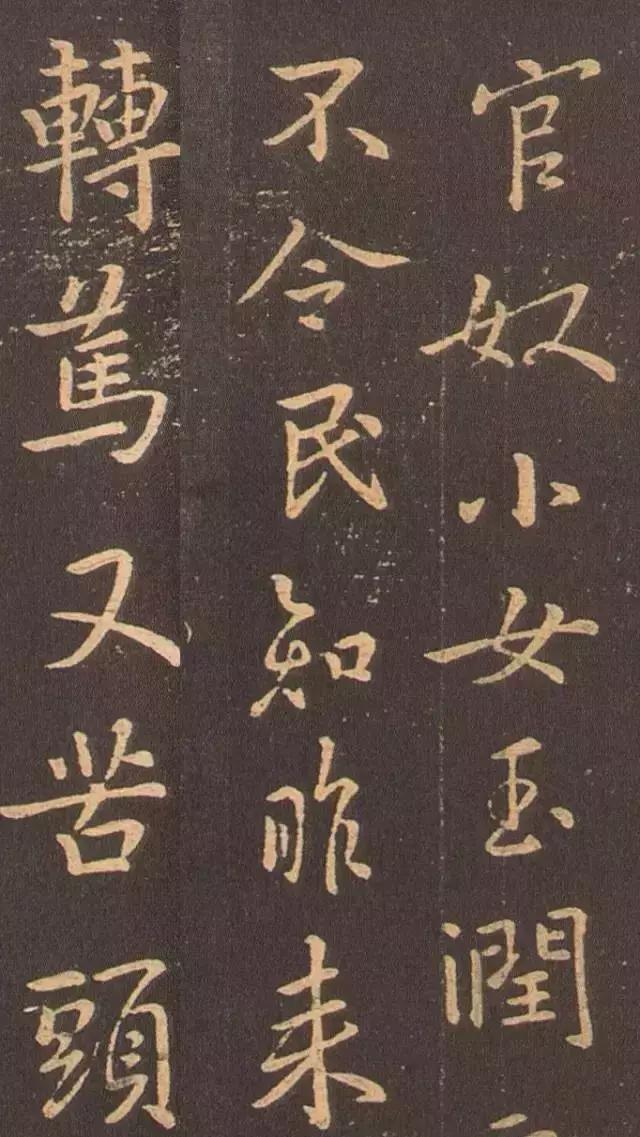 官奴小女玉潤
不令民知昨来
轉篤又苦頭